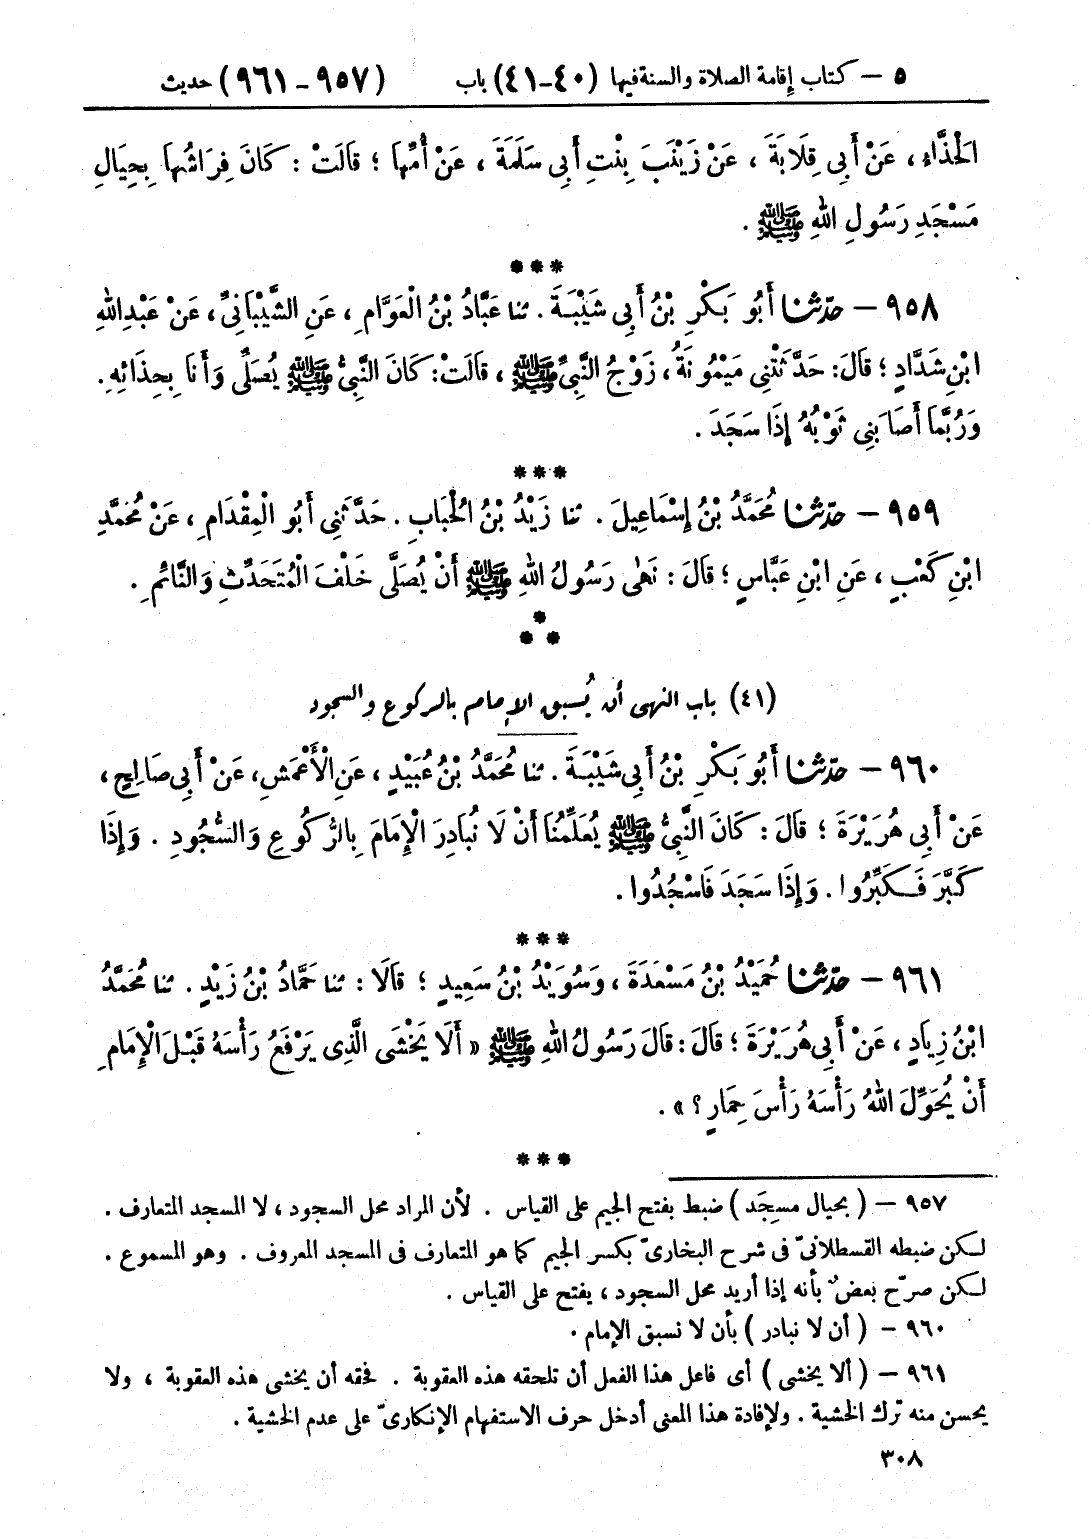 ٥ – كتاب إقامة الصلاة والسنة فيها (٤٠-٤١) باب (٩٥٧-٩٦١) حديث
الْحَذَّاءِ ، عَنْ أَبِي قِلَابَةَ ، عَنْ زَيْنَبَ بِنْتِ أَبِي سَلَمَةَ ، عَنْ أُمِّهَا ؛ قَالَتْ : كَانَ فِرَاشُهَا بِحِيَالِ
مَسْجَدِ رَسُولِ اللهِ ﷺ .
***
٩٥٨ – حَدَّثَنَا أَبُو بَكْرِ بْنُ أَبِي شَيْبَةَ . ثنا عَبَّادُ بْنُ الْعَوَّامِ ، عَنِ الشَّيْبَانِيِّ ، عَنْ عَبْدِ اللهِ
ابْنِ شَدَّادٍ ؛ قَالَ : حَدَّثَتْنِي مَيْمُونَةُ ، زَوْجُ النَّبِيِّ ﷺ ، قَالَتْ : كَانَ النَّبِيُّ ﷺ يُصَلِّي وَأَنَا بِحِذَائِهِ .
وَرُبَّمَا أَصَابَنِي ثَوْبُهُ إِذَا سَجَدَ .
***
٩٥٩ – حَدَّثَنَا مُحَمَّدُ بْنُ إِسْمَاعِيلَ . ثنا زَيْدُ بْنُ الْحُبَابِ . حَدَّثَنِي أَبُو الْمِقْدَامِ ، عَنْ مُحَمَّدِ
ابْنِ كَعْبٍ ، عَنِ ابْنِ عَبَّاسٍ ؛ قَالَ : نَهَى رَسُولُ اللهِ ﷺ أَنْ يُصَلَّى خَلْفَ الْمُتَحَدِّثِ وَالنَّائِمِ .
*
* *
(٤١) باب النهى أن يُسبق الإمام بالركوع والسجود
٩٦٠ – حَدَّثَنَا أَبُو بَكْرِ بْنُ أَبِي شَيْبَةَ . ثنا مُحَمَّدُ بْنُ عُبَيْدٍ ، عَنِ الْأَعْمَشِ ، عَنْ أَبِي صَالِحٍ ،
عَنْ أَبِي هُرَيْرَةَ ؛ قَالَ : كَانَ النَّبِيُّ ﷺ يُعَلِّمُنَا أَنْ لَا نُبَادِرَ الْإِمَامَ بِالرُّكُوعِ وَالسُّجُودِ . وَإِذَا
كَبَّرَ فَكَبِّرُوا . وَإِذَا سَجَدَ فَاسْجُدُوا .
***
٩٦١ – حَدَّثَنَا حُمَيْدُ بْنُ مَسْعَدَةَ ، وَسُوَيْدُ بْنُ سَعِيدٍ ؛ قَالَا : ثنا حَمَّادُ بْنُ زَيْدٍ . ثنا مُحَمَّدُ
ابْنُ زِيَادٍ ، عَنْ أَبِي هُرَيْرَةَ ؛ قَالَ : قَالَ رَسُولُ اللهِ ﷺ « أَلَا يَخْشَى الَّذِي يَرْفَعُ رَأْسَهُ قَبْلَ الْإِمَامِ
أَنْ يُحَوِّلَ اللهُ رَأْسَهُ رَأْسَ حِمَارٍ ؟ » .
***
٩٥٧ – ( بحيال مسجَد ) ضبط بفتح الجيم على القياس . لأن المراد محل السجود ، لا المسجد المتعارف .
لكن ضبطه القسطلانىّ فى شرح البخارىّ بكسر الجيم كما هو المتعارف فى المسجد المعروف . وهو المسموع .
لكن صرّح بعضٌ بأنه إذا أريد محل السجود ، يفتح على القياس .
٩٦٠ – ( أن لا نبادر ) بأن لا نسبق الإمام .
٩٦١ – ( ألا يخشى ) أى فاعل هذا الفعل أن تلحقه هذه العقوبة . فحقه أن يخشى هذه العقوبة ، ولا
يحسن منه ترك الخشية . ولإفادة هذا المعنى أدخل حرف الاستفهام الإنكارىّ على عدم الخشية .
٣٠٨